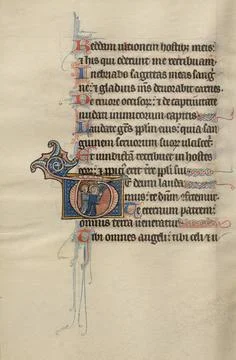 Reddam ultionem hostibus meis:
⁊ his qui oderunt me retribuam.
Inebriabo sagittas meas sangui
ne: ⁊ gladius mīs devorabit carnes.
De cruore occisorꝝ: ⁊ de captivitate
nudati inimicorum capitis
Laudate gētes pplm eius: quia san
guinem servorum suorꝝ ulciscetᷣ
Et vindictā retribuet in hostes
eorꝝ: ⁊ ppici᾿ erit tre ppli sui
Te deum lauda
mus: te dnm confitemur.
Te eternum patrem:
omnis terra veneratur
Tibi omnes angeli: tibi celi ⁊ u